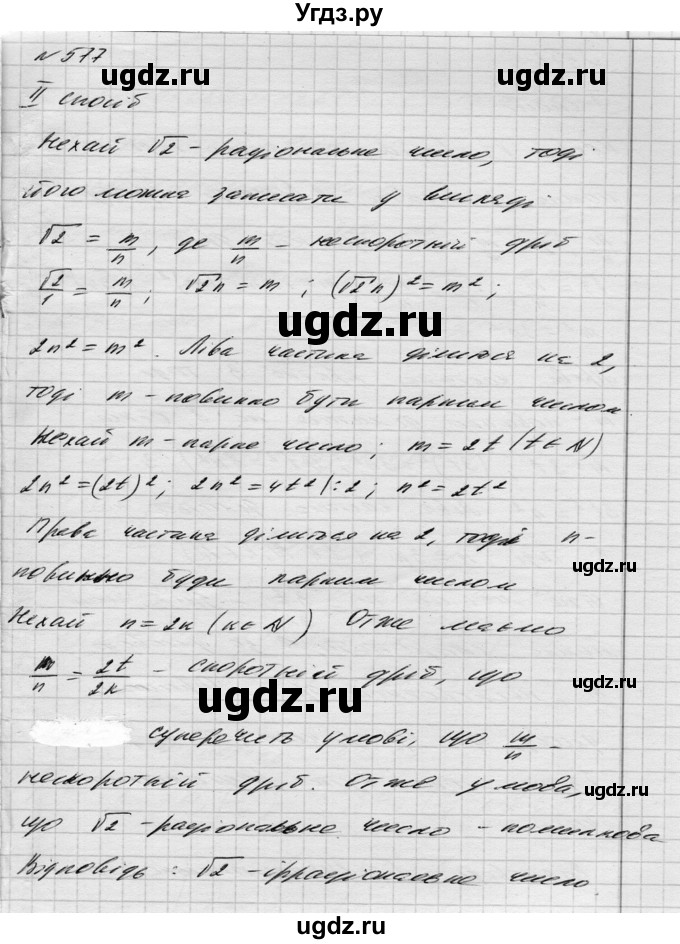 Угдз.ру
№577
ugdz.ru
ugdz.ru
II спосіб
Нехай √2 - раціональне число, тоді
його можна записати у вигляді
ugdz.ru
√2 = m/n, де m/n - нескоротний дріб
√2/1 = m/n; √2n = m; (√2n)² = m²;
ugdz.ru
2n² = m². Ліва частина ділиться на 2,
тоді m - повинно бути парним числом
Нехай m - парне число; m = 2t (t ∈ N)
2n² = (2t)²; 2n² = 4t² |:2; n² = 2t²
Права частина ділиться на 2, тоді n -
ugdz.ru
повинно буди парним числом
Нехай n = 2k (k ∈ N) Отже маємо
m/n = 2t/2k - скоротний дріб, що
ugdz.ru
суперечить умові, що m/n -
нескоротній дріб. Отже умова,
ugdz.ru
що √2 - раціональне число - помилкова
Відповідь: √2 - ірраціональне число.
ugdz.ru
ugdz.ru